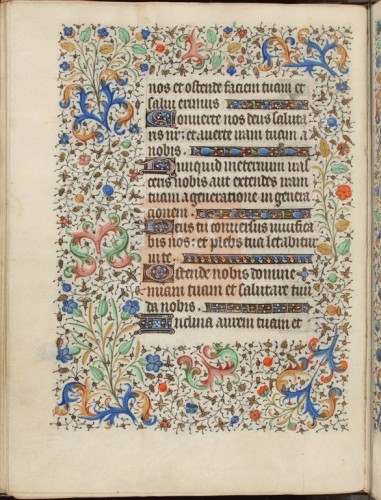 nos et ostende faciem tuam et
salui erimus
Conuerte nos deus saluta
ris nr̄: et auerte iram tuam a
nobis.
Nunquid in eternum iras
ceris nobis aut extendes iram
tuam a generatione in genera
cionem.
Deus tu conuersus uiuifica
bis nos: et plebs tua letabitur
in te.
Ostende nobis domine
miam tuam et salutare tuū
da nobis.
Inclina aurem tuam et